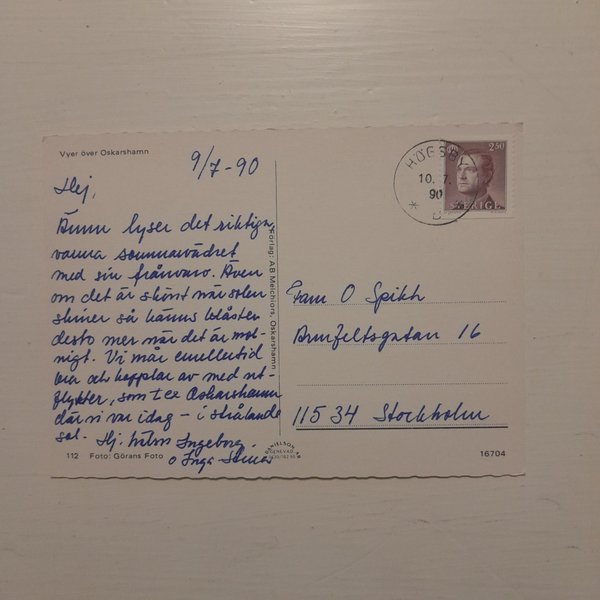 Vyer över Oskarshamn
9/7-90
Hej,
Ännu lyser det riktiga,
varma sommarvädret
med sin frånvaro. Även
om det är skönt när solen
skiner så känns blåsten
desto mer när det är mol-
nigt. Vi mår emellertid
bra och kopplar av med ut-
flykter, som t ex Oskarshamn
där vi var idag – i strålande
sol. Hj. hälsn Ingeborg
o Inga
112 Foto: Görans Foto
Förlag: AB Melchiors, Oskarshamn
DANIELSON AB
GENEVAD
HÖGSBY
10. 7.
90
2.50
SVERIGE
Fam O
16
115 34 Stockholm
16704